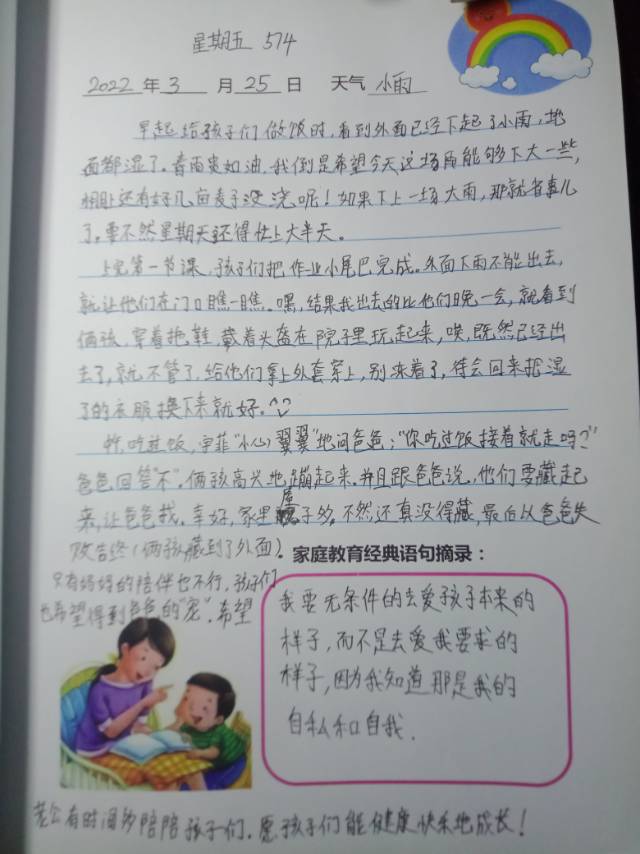 星期五 574
2022 年 3 月 25 日 天气 小雨
早起给孩子们做饭时,看到外面已经下起了小雨,地
面都湿了。春雨贵如油,我倒是希望今天这场雨能够下大一些,
咱还有好几亩麦子没浇呢!如果下上一场大雨,那就省事儿
了。要不然星期天还得忙上大半天。
上完第一节课,孩子们把作业小尾巴完成。外面下雨不能出去,
就让他们在门口瞧一瞧。嘿,结果我出去的比他们晚一会,就看到
俩孩,穿着拖鞋,戴着头盔在院子里玩起来,唉,既然已经出
去了,就不管了,给他们拿上外套穿上,别冻着了,待会回来把湿
了的衣服换下来就好。^◡^
吃过饭,宇菲“小心翼翼”地问爸爸:“你吃过饭接着就走吗?”
爸爸回答“不”。俩孩高兴地蹦起来。并且跟爸爸说,他们要藏起
来,让爸爸找。幸好,家里屋子多,不然还真没得藏,最后以爸爸失
败告终(俩孩藏到了外面)。
只有妈妈的陪伴也不行,孩子们
也希望得到爸爸的“宠”。希望
老公有时间多陪陪孩子们。愿孩子们能健康快乐地成长!
家庭教育经典语句摘录:
我要无条件的去爱孩子本来的
样子,而不是去爱我要求的
样子,因为我知道那是我的
自私和自我.